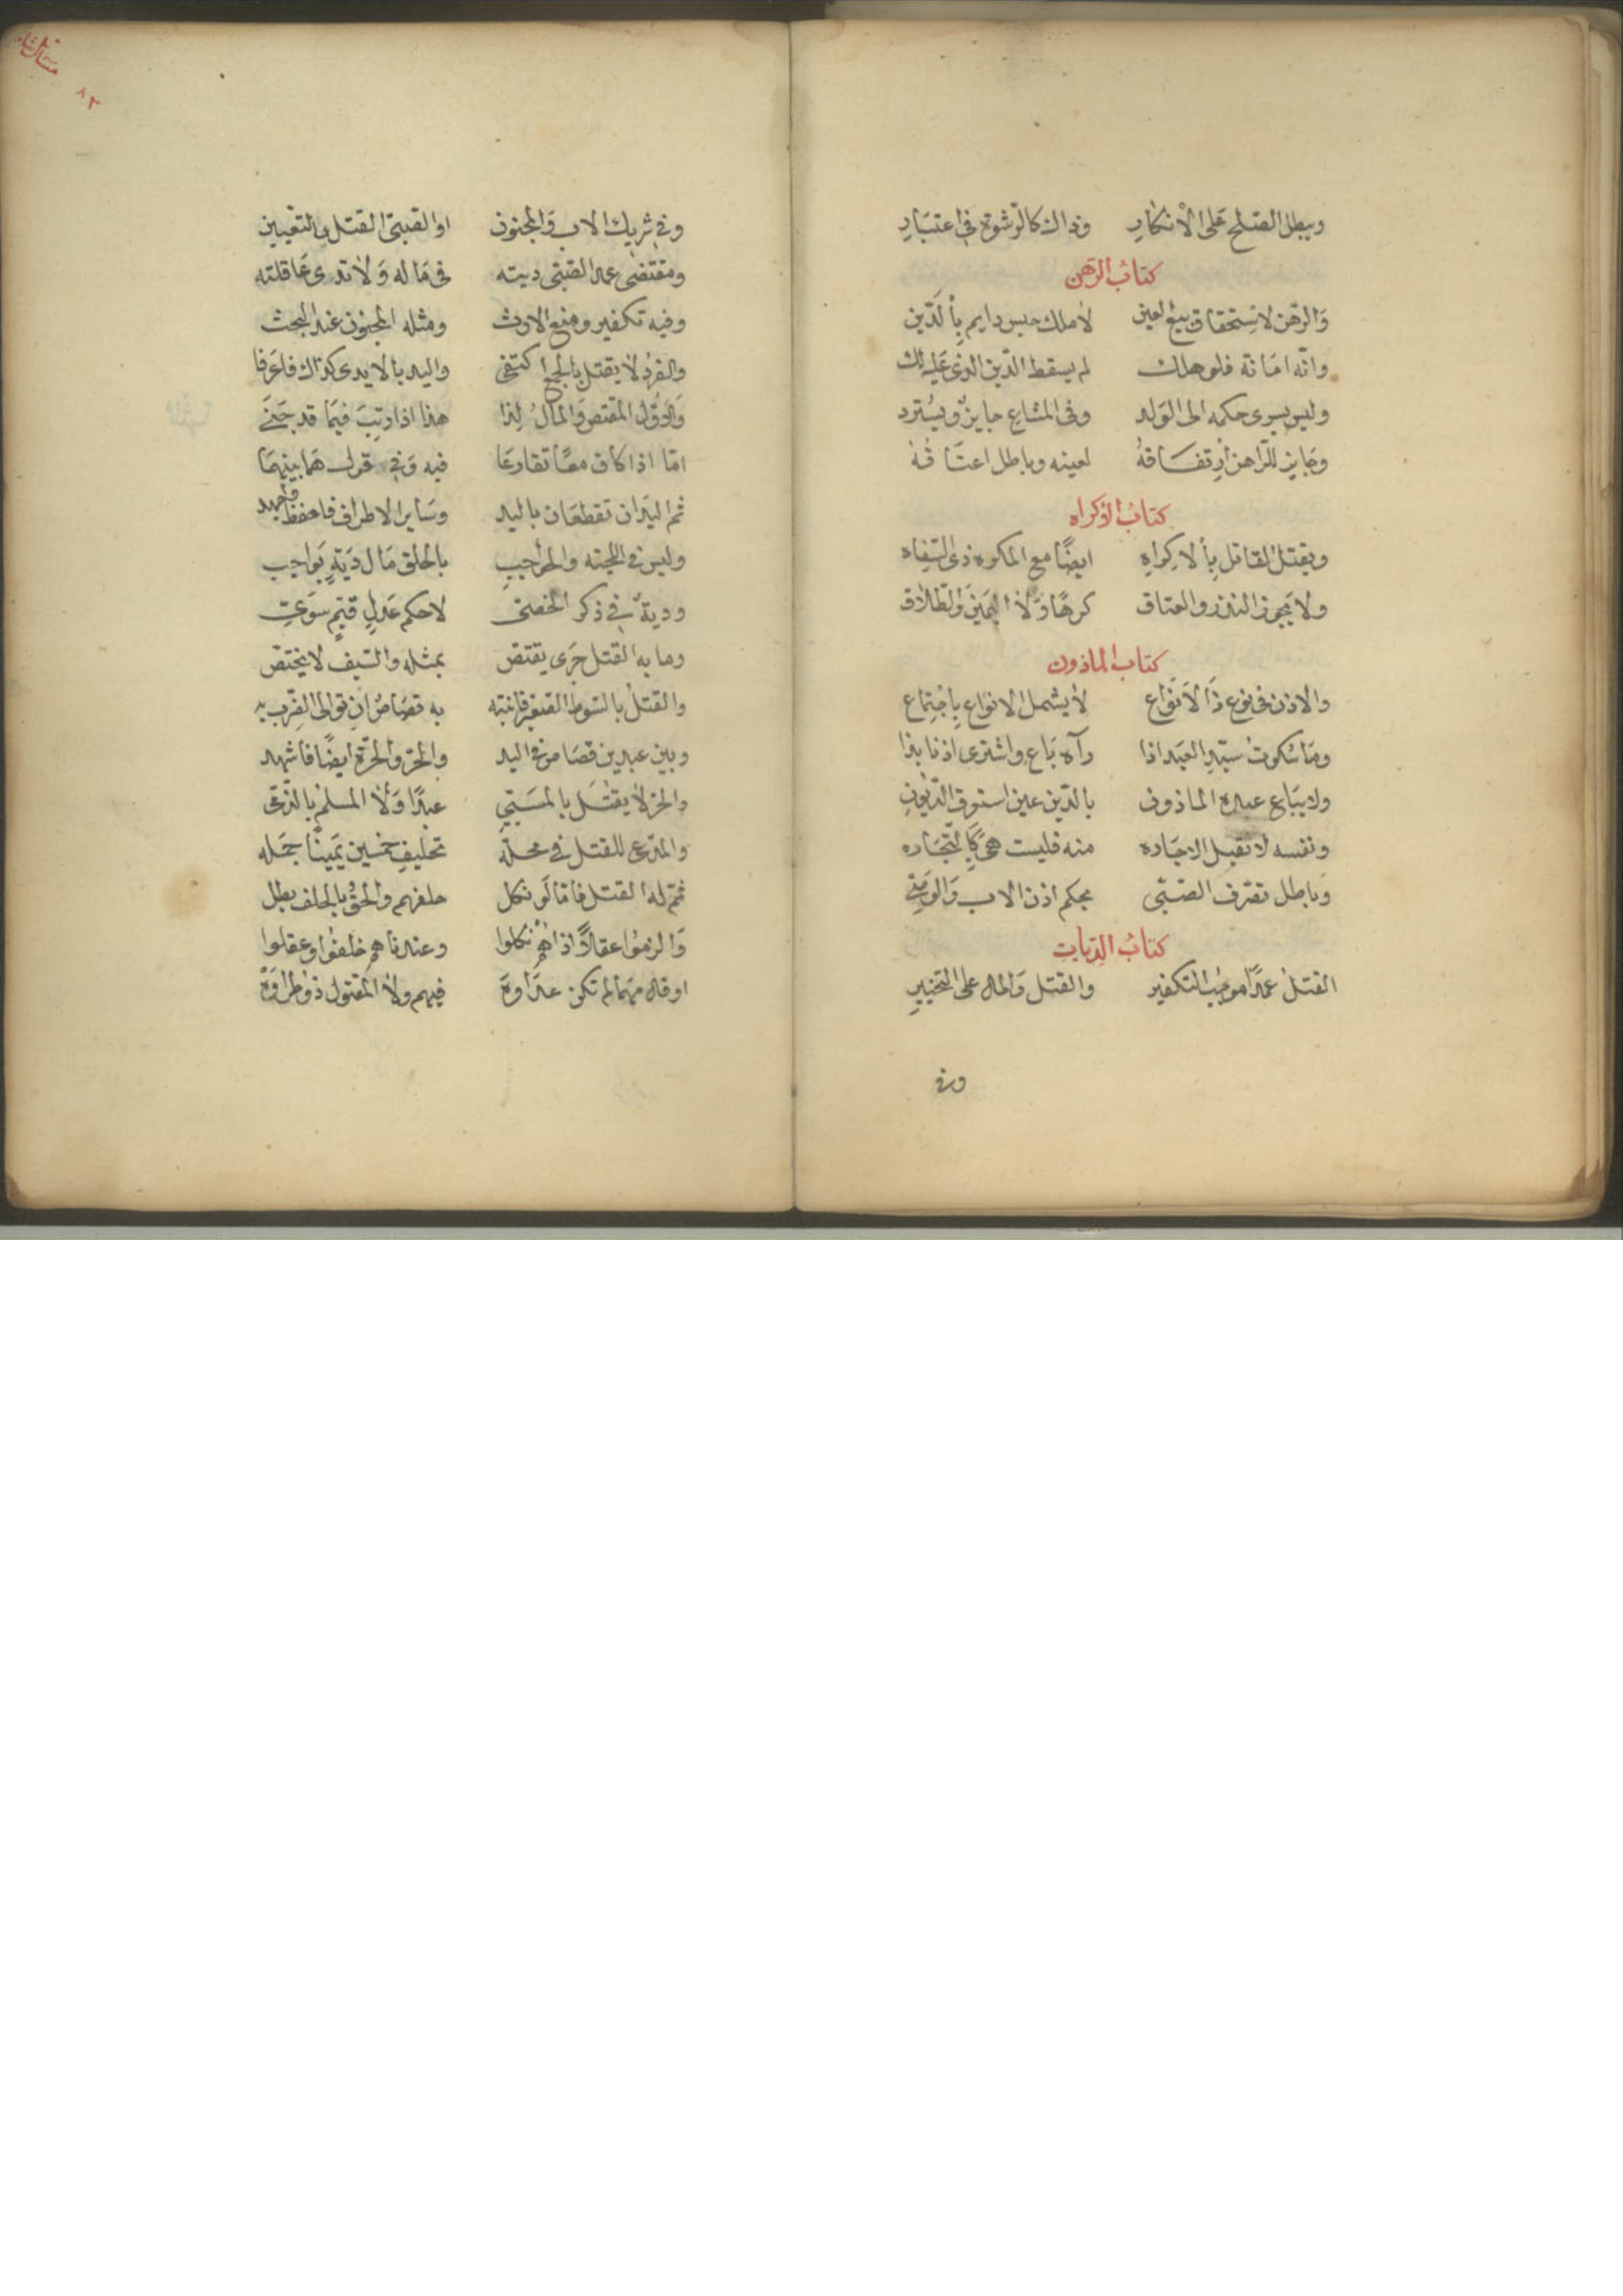 ويبطل الصلح على الانكار وذاك كالرشوة في اعتبار
كتاب الرهن
والرهن لاستحقاق بيع العين لا ملك حبس دايم بالدين
وانه امانة فلو هلك لم يسقط الدين الذي عليه لك
وليس يسرى حكمه الى الولد وفى المشاع جايز ويسترد
وجايز للراهن ارتفاقه لعينه وباطل اعتاقه
كتاب الاكراه
ويقتل القاتل بالاكراه ايضا مع المكره ذى السفاه
ولا يجوز النذر والعتاق كرها ولا اليمين والطلاق
كتاب الماذون
والاذن فى نوع ذا الانواع لا يشمل الانواع باجتماع
وما سكوت سيد العبد اذا رآه باع واشترى اذنا بذا
ولا يباع عبده الماذون بالدين عين استوفى الديون
ونفسه لا تقبل الاجاره منه فليست هى كالتجاره
وباطل تصرف الصبى بحكم اذن الاب والوصى
كتاب الديات
القتل عمدا موجب التكفير والقتل والمال على التخيير
وفى
وفى شريك الاب والمجنون او الصبى القتل بالتعيين
ومقتضى عمد الصبى ديته فى ماله ولا تدى عاقلته
وفيه تكفير ومنع الارث ومثله المجنون عند البحث
والفرد لا يقتل بالجمع اكتفى واليد بالايدى كذاك فاعرفا
والاول المقتص والمال لذا هذا اذا رتب فيما قد جنى
اما اذا كان معا تقارعا فيه وفى قول هما بينهما
ثم اليدان تقطعان باليد وساير الاطراف فاحفظ واجهد
وليس فى اللحية والحواجب بالحلق مال دية بواجب
ودية فى ذكر الخصى لا حكم عدل قيم سوى
وما به القتل جرى يقتص بمثله والسيف لا يختص
والقتل بالسوط الصغير فانتبه به قصاص ان توالى الضرب به
وبين عبدين قصاص فى اليد والحر والحرة ايضا فاشهد
والحر لا يقتل بالمستى عبدا ولا المسلم بالذمى
والمدعى للقتل فى محله تحليف خمسين يمينا جمله
ثم له القتل فاما لو نكل حلفهم والحق بالحلف بطل
والزموا عقلا اذا هم نكلوا وعندنا هم حلفوا وعقلوا
او قال مهما لم تكن عداوة فيهم ولا المقتول ذو طراوة
٨٣